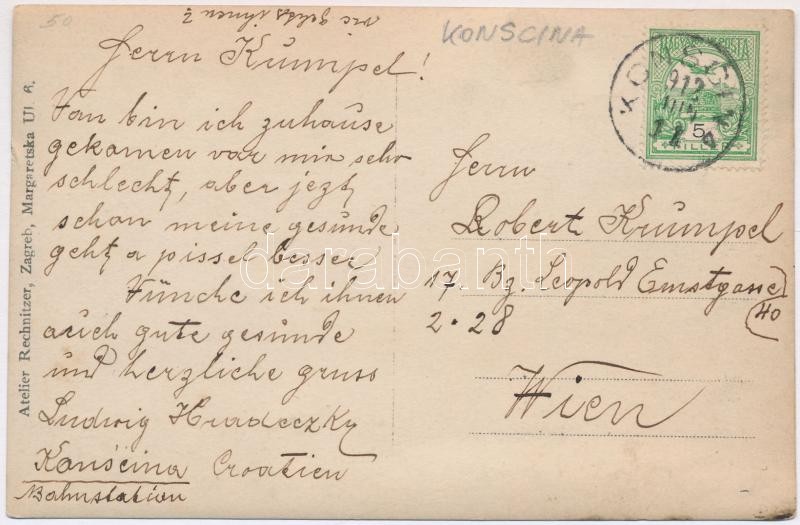 50
wie gehts ihnen?
Herrn Krumpel!
Van bin ich zuhause
gekomen var mir sehr
schlecht, aber jezt
schon meine gesunde
geht a pissel besser
Vünche ich ihnen
auch gute gesunde
und herzliche gruss
Ludwig Hradeczky
Konšćina Croatien
Bahnstation
Atelier Rechnitzer, Zagreb, Margaretska Ul. 6.
KONSCINA
KONSCINA
912 JUN
5
FILLER
Herrn
Robert Krumpel
17 Bz. Leopold Ernstgasse
2·28
40
Wien
darabanth